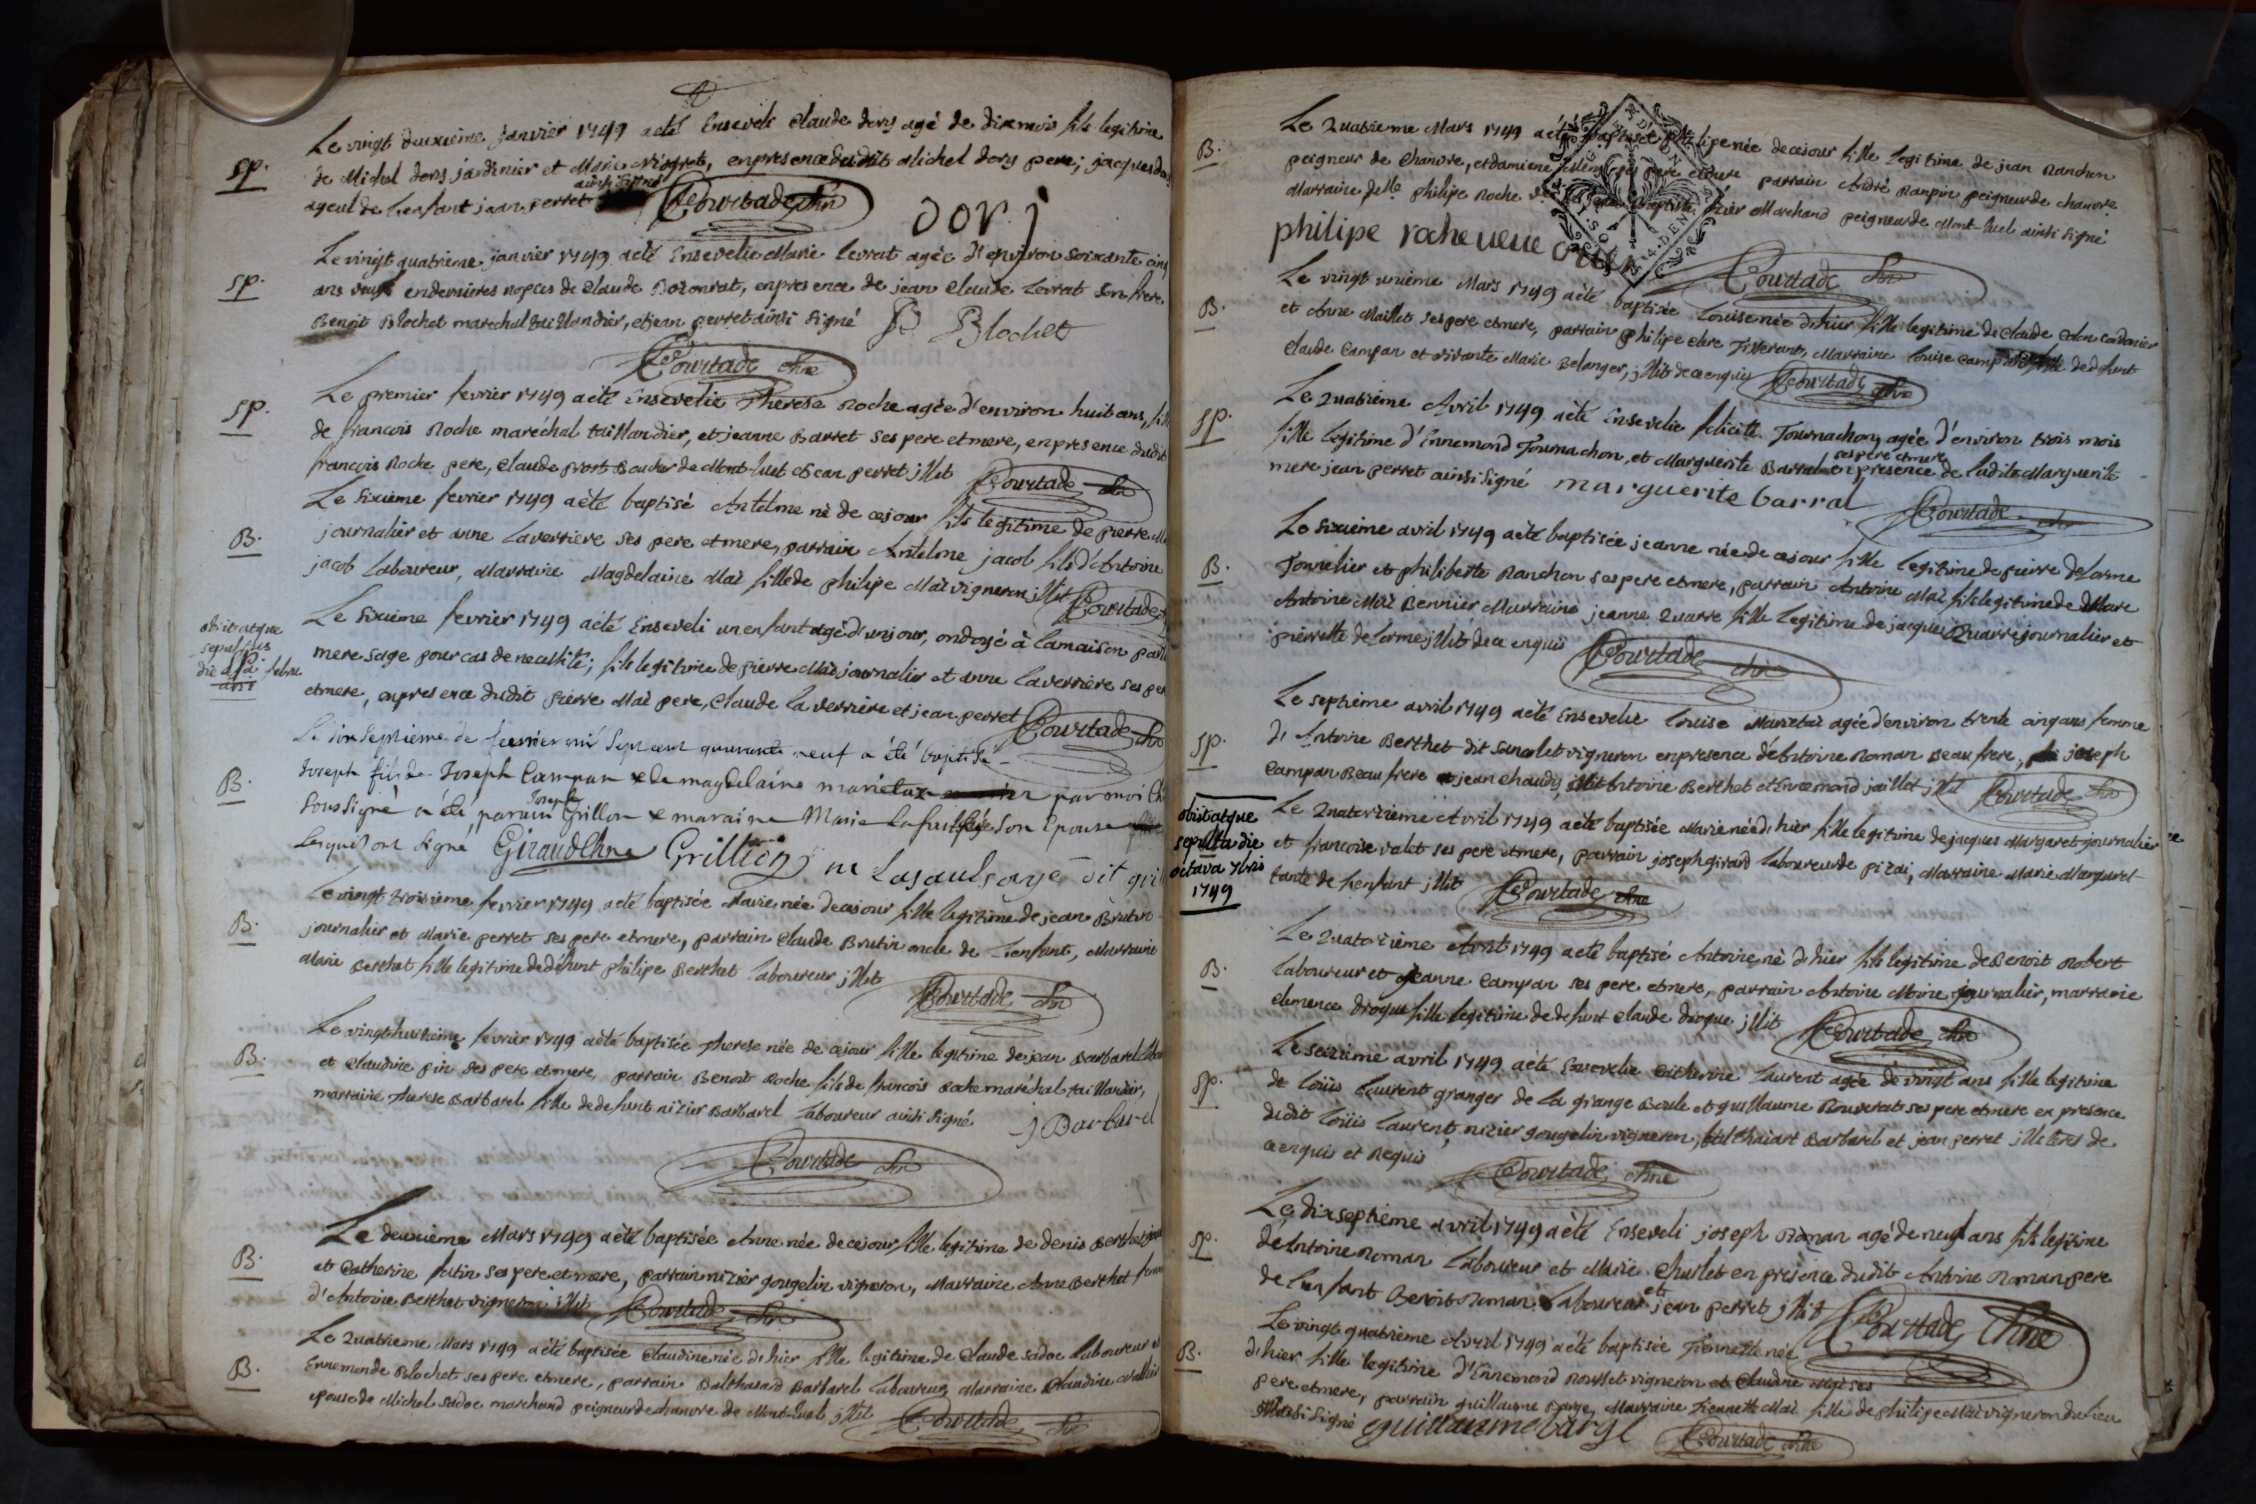 Le vingt deuxième Janvier 1749 a été Enseveli Claude dory agé de dix mois fils legitime
sp.
de Michel dory jardinier et Marie, en presence dudit Michel dory pere; jacques
ainsi signé
ageul de L'enfant jean perret Courtade Chne
DORJ
Le vingt quatrieme janvier 1749 a été Ensevelie Marie Levrat agée d'environ soixante cinq
sp.
ans en dernieres nopces de Claude, en presence de jean Claude Levrat son frere
Benoit Blochet marechal taillandier, et jean perret ainsi signé B Blochet
Courtade chne
Le premier fevrier 1749 a été Ensevelie Therese Roche agée d'environ huit ans,
sp.
de francois Roche maréchal taillandier, et jeanne Barret ses pere et mere, en presence dudit
francois Roche pere, Claude prost Boucher de Mont-luel et jean perret illit Courtade chne
Le sixième fevrier 1749 a été baptisé Antelme né de ce jour fils legitime de pierre
B.
journalier et anne Laverriere ses pere et mere, parrain Antelme jacob fils d'Antoine
jacob Laboureur, Marraine Magdelaine Mai fille de philipe Mai vigneron illit Courtade
Le sixieme fevrier 1749 a été Enseveli un enfant agé d'un jour, ondoyé à la maison par la
obiit atque
sepultus
mere sage pour cas de necessité; fils legitime de pierre Mai journalier et anne Laverriere ses pere
et mere, en presence dudit pierre Mai pere, Claude la verriere et jean perret Courtade chne
Le dix septième de fevrier mil sept cent quarante neuf a été baptisé
B.
Joseph fils de Joseph Campan & de magdelaine par moi
soussigné a été parain Joseph Grillon & maraine Marie son Epouse
Lesquels ont signé Giraud Chne Grillion m Lasaulsaye dit
Le vingt troisieme fevrier 1749 a été baptisée Marie née de ce jour fille legitime de jean Brutin
B.
journalier et Marie perret ses pere et mere, parrain Claude Brutin oncle de L'enfant, Marraine
Marie Berthet fille legitime de défunt philipe Berthet Laboureur illit Courtade chne
Le vingt huitieme fevrier 1749 a été baptisée Therese née de ce jour fille legitime de jean Barbarel
B.
et Claudine pin ses pere et mere, parrain Benoit Roche fils de francois Roche maréchal taillandier,
marraine Therese Barbarel fille de defunt nizier Barbarel Laboureur ainsi signé j Barbarel
Courtade chne
Le deuxième Mars 1749 a été baptisée Anne née de ce jour fille legitime de denis Berthet
B.
et Catherine ses pere et mere, parrain nizier gougelin vigneron, Marraine Anne Berthet
d'Antoine Berthet vigneron illit Courtade chne
Le Quatrieme Mars 1749 a été baptisée Claudine née d'hier fille legitime de Claude sadoc Laboureur
B.
Ennemonde Blochet ses pere et mere, parrain Balthazard Barbarel Laboureur Marraine Claudine
epouse de Michel sadoc marchand peigneur de chanvre de Mont-luel illit Courtade chne
Le Quatrieme Mars 1749 a été baptisée philipe née de ce jour fille legitime de jean Ranchon
B.
peigneur de chanvre, et damiene ses pere et mere parrain André peigneur de chanvre
Marraine delle philipe Roche Marchand peigneur de Mont-luel ainsi signé
philipe roche veuve
Courtade chne
Le vingt unième Mars 1749 a été baptisée Louise née d'hier fille legitime de Claude Colon Cordonier
B.
et Anne Maillet ses pere et mere, parrain philipe Tisserant, Marraine Louise Campan fille de defunt
Claude Campan et vivante Marie Belanger, illit de ce enquis Courtade chne
Le Quatrième Avril 1749 a été Ensevelie felicité Tournachon, agée d'environ trois mois
sp.
ses pere et mere
fille legitime d'Ennemond Tournachon, et Marguerite Barral en presence de ladite Marguerite
mere jean perret ainsi signé marguerite barral Courtade chne
Le sixième avril 1749 a été baptisée jeanne née de ce jour fille legitime de pierre delorme
B.
Tonnelier et philiberte Ranchon ses pere et mere, parrain Antoine Mai fils legitime de
Antoine Mai Marraine jeanne Quarre fille legitime de jacques Quarre journalier et
pierrette delorme illit de ce enquis Courtade chne
Le septième avril 1749 a été Ensevelie Louise agée d'environ trente cinq ans femme
sp.
de Antoine Berthet dit vigneron en presence d'Antoine Roman Beau frere, joseph
Campan Beau frere jean Antoine Berthet et Ennemond jaillet illit Courtade chne
obiit atque
sepulta die
octava 7bris
1749
Le Quatorzième Avril 1749 a été baptisée Marie née d'hier fille legitime de jacques Margaret journalier
et francoise valet ses pere et mere, parrain joseph girard Laboureur de pizai, Marraine Marie Margaret
tante de L'enfant illit Courtade chne
Le Quatorzième Avril 1749 a été baptisé Antoine né d'hier fils legitime de Benoit Robert
B.
Laboureur et jeanne Campan ses pere et mere, parrain Antoine Moine journalier, marraine
Clemence droque fille legitime de defunt Claude droque illit Courtade chne
Le seizième avril 1749 a été Ensevelie Catherine Laurent agée de vingt ans fille legitime
sp.
de Loüis Laurent granger de La grange Boule et guillaume ses pere et mere en presence
dudit Loüis Laurent, nizier gougelin vigneron, Barbarel et jean perret illiterés de
ce enquis et Requis Courtade chne
Le dix septième avril 1749 a été Enseveli joseph Roman agé de neuf ans fils legitime
sp.
d'Antoine Roman Laboureur et Marie Charlet en presence dudit Antoine Roman pere
de L'enfant Benoit Roman Laboureur et jean perret illit Courtade Chne
Le vingt quatrième Avril 1749 a été baptisée Fiennette née
B.
d'hier fille legitime d'Ennemond vigneron et Claudine ses
pere et mere, parrain guillaume, Marraine Fiennette Mai fille de philipe Mai vigneron du lieu
ainsi signé guillaume Courtade chne